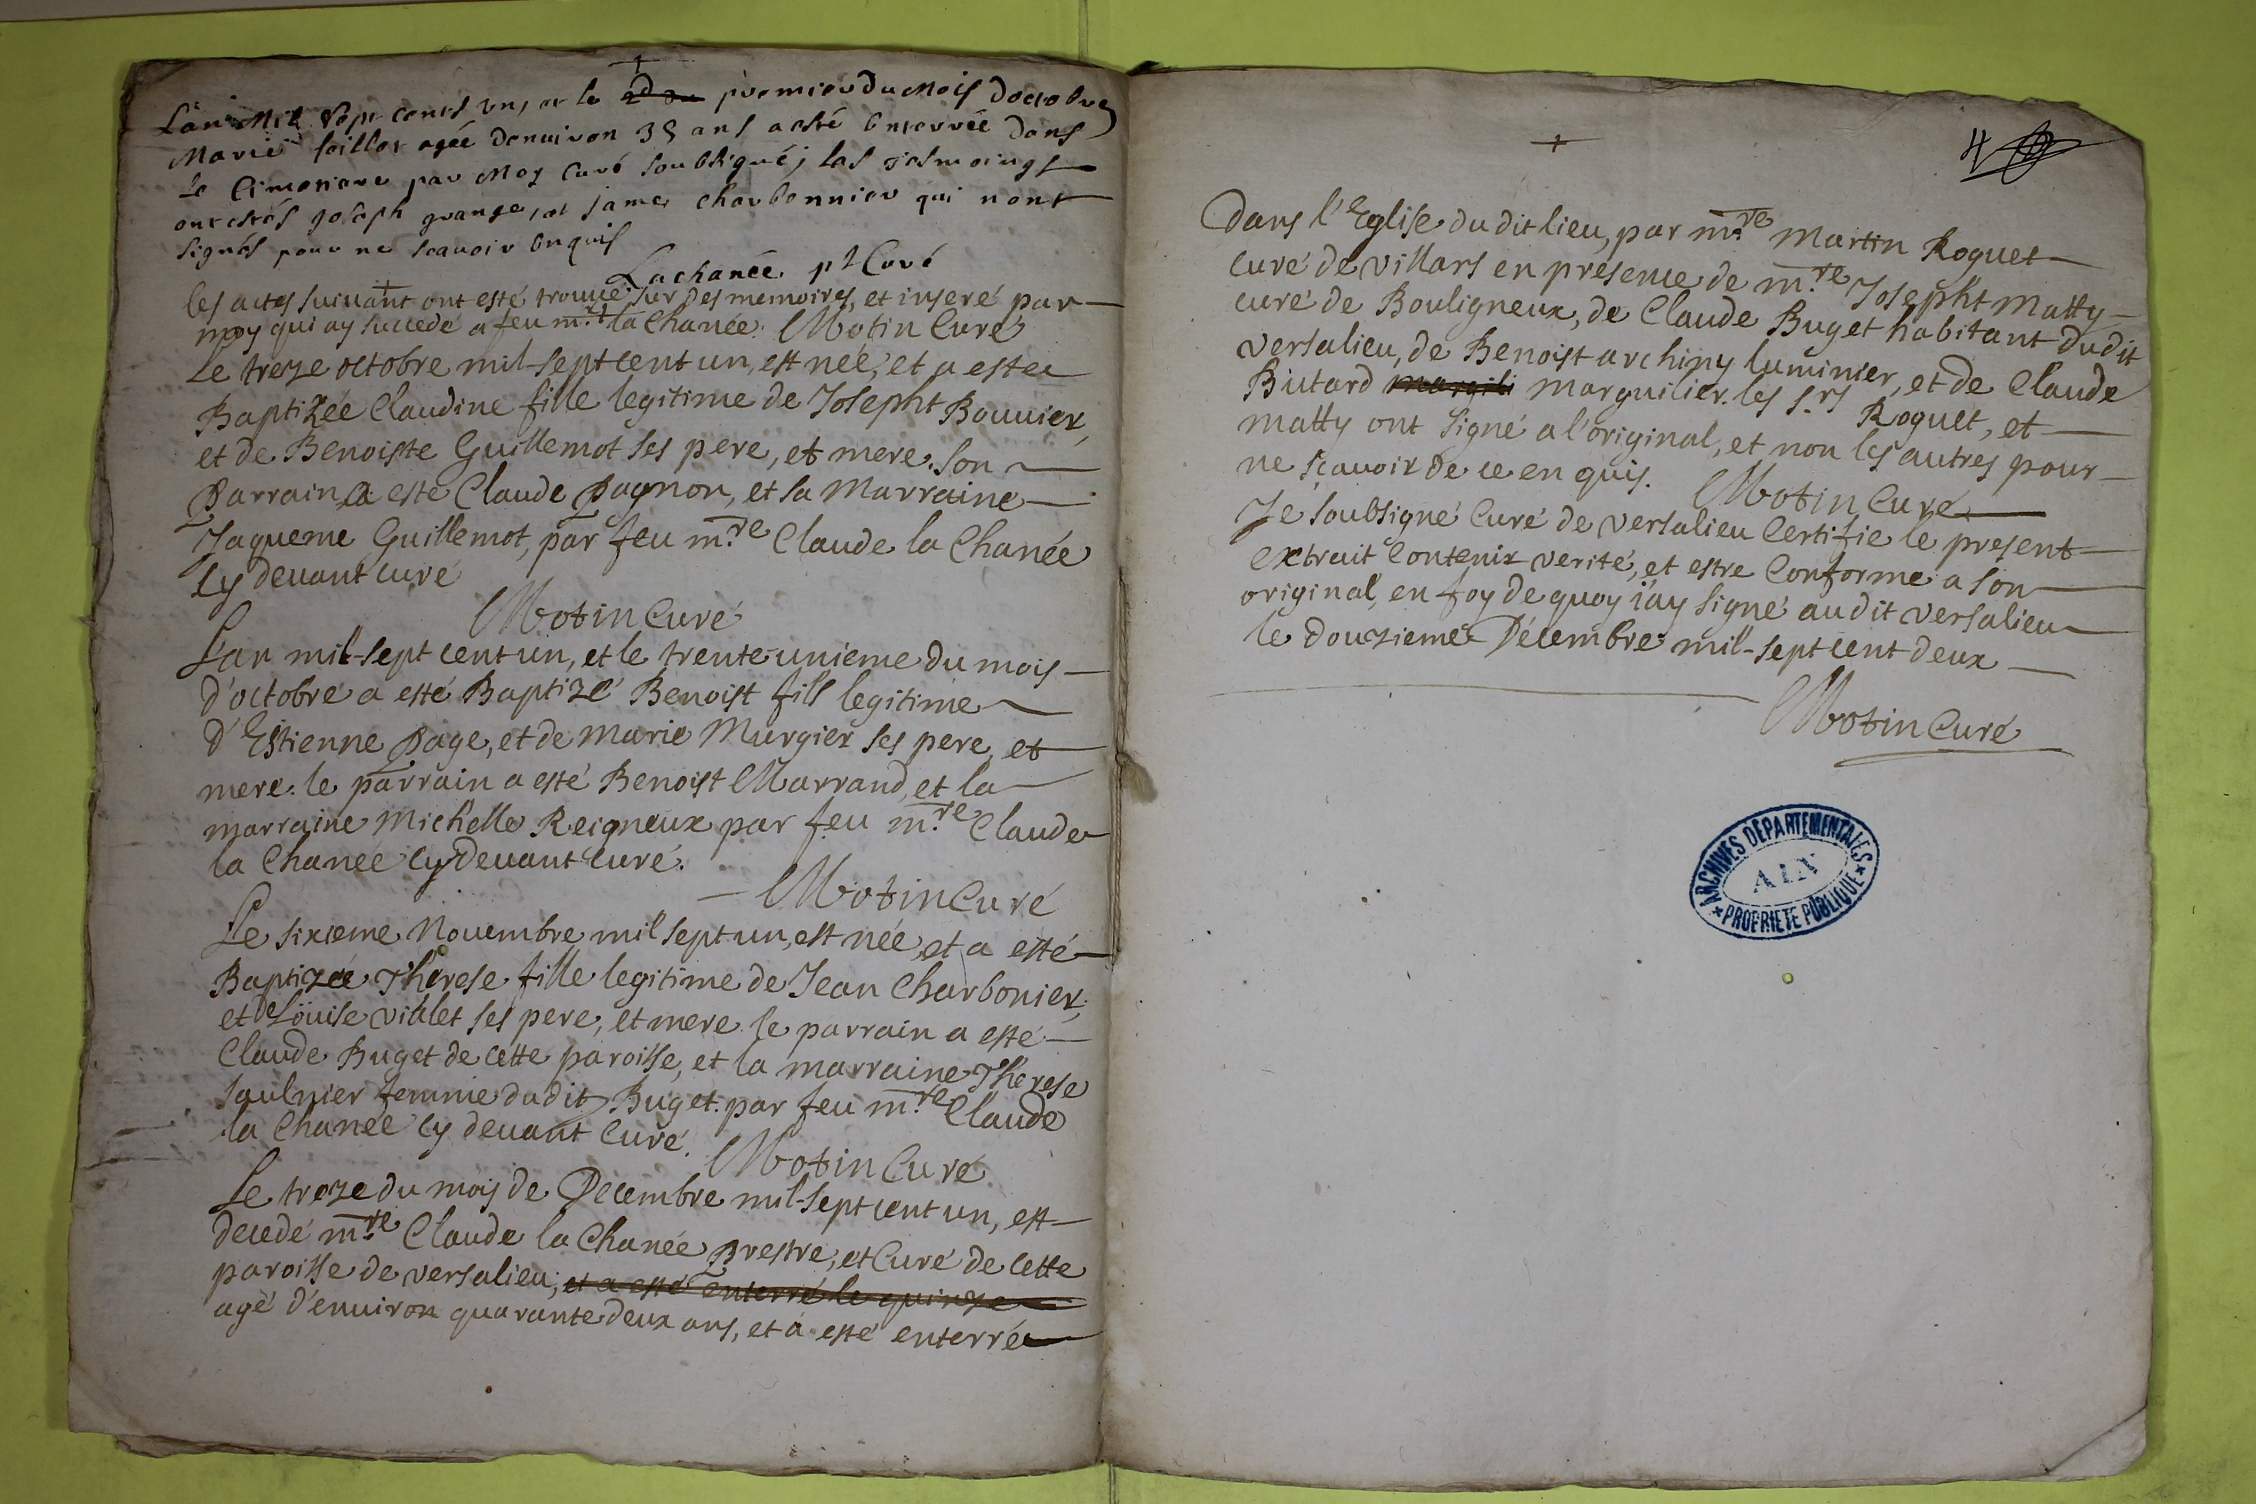 L'an Mil Sept cents un, et le ~~2d du~~ premier du Mois d'octobre
Marie Soillet agée denuiron 35 ans a esté Enterrée dans
le Cimetiere par Moy Curé soubsigné; les tesmoings
ont estés Joseph grange, et Jame Charbonnier qui nont
signés pour ne scauoir Enquis
Lachanée pt Curé
les actes suiuant ont esté trouué sur des memoires, et inseré par
moy qui ay succedé a feu mre la Chanée. Motin Curé
Le treze octobre mil-sept cent un, est née, et a esté
Baptizée Claudine fille legitime de Josepht Bouuier,
et de Benoiste Guillemot ses pere, et mere. son
Parrain a esté Claude Pagnon, et sa Marraine
Jaqueme Guillemot, par feu m.re Claude la Chanée
Cy deuant curé
Motin Curé
L'an mil-sept cent un, et le trente-unieme du mois
d'octobre a esté Baptizé Benoist fils legitime
d'Estienne Page, et de Marie Murgier ses pere, et
mere. le parrain a esté Benoist Marrand, et la
marraine Michelle Reigneux par feu m.re Claude
la Chanée Cy Deuant Curé.
Motin Curé
Le sixieme Nouembre mil sept un, est née, et a esté
Baptizée Therese fille legitime de Jean Charbonier,
et de Loüise viallet ses pere, et mere. le parrain a esté
Claude Buget de cette paroisse, et la marraine Therese
Saulnier femme dudit Buget. par feu m.re Claude
la Chanée Cy deuant Curé.
Motin Curé
Le treze du mois de Decembre mil-sept cent un, est
decedé m.re Claude la Chanée Prestre, et Curé de cette
paroisse de versalieu, ~~et a esté enterré le quinze~~
agé d'enuiron quarante deux ans, et a esté enterré
4
Dans l'Eglise du dit lieu, par m.re Martin Roguet
curé de villars en presence de m.re Josepht Matty
curé de Bouligneux, de Claude Buget habitant du dit
versalieu, de Benoist archiny luminier, et de Claude
Butard ~~margili~~ marguilier. les s.rs Roguet, et
matty ont signé a l'original, et non les autres pour
ne sçauoir de ce en quis.
Motin Curé
Je soubsigné Curé de versalieu Certifie le present
extrait Contenir verité, et estre Conforme a son
original, en foy de quoy i'ay signé au dit versalieu
le douzieme Décembre mil-sept cent deux
Motin Curé
ARCHIVES DÉPARTEMENTALES
AIN
PROPRIETE PUBLIQUE